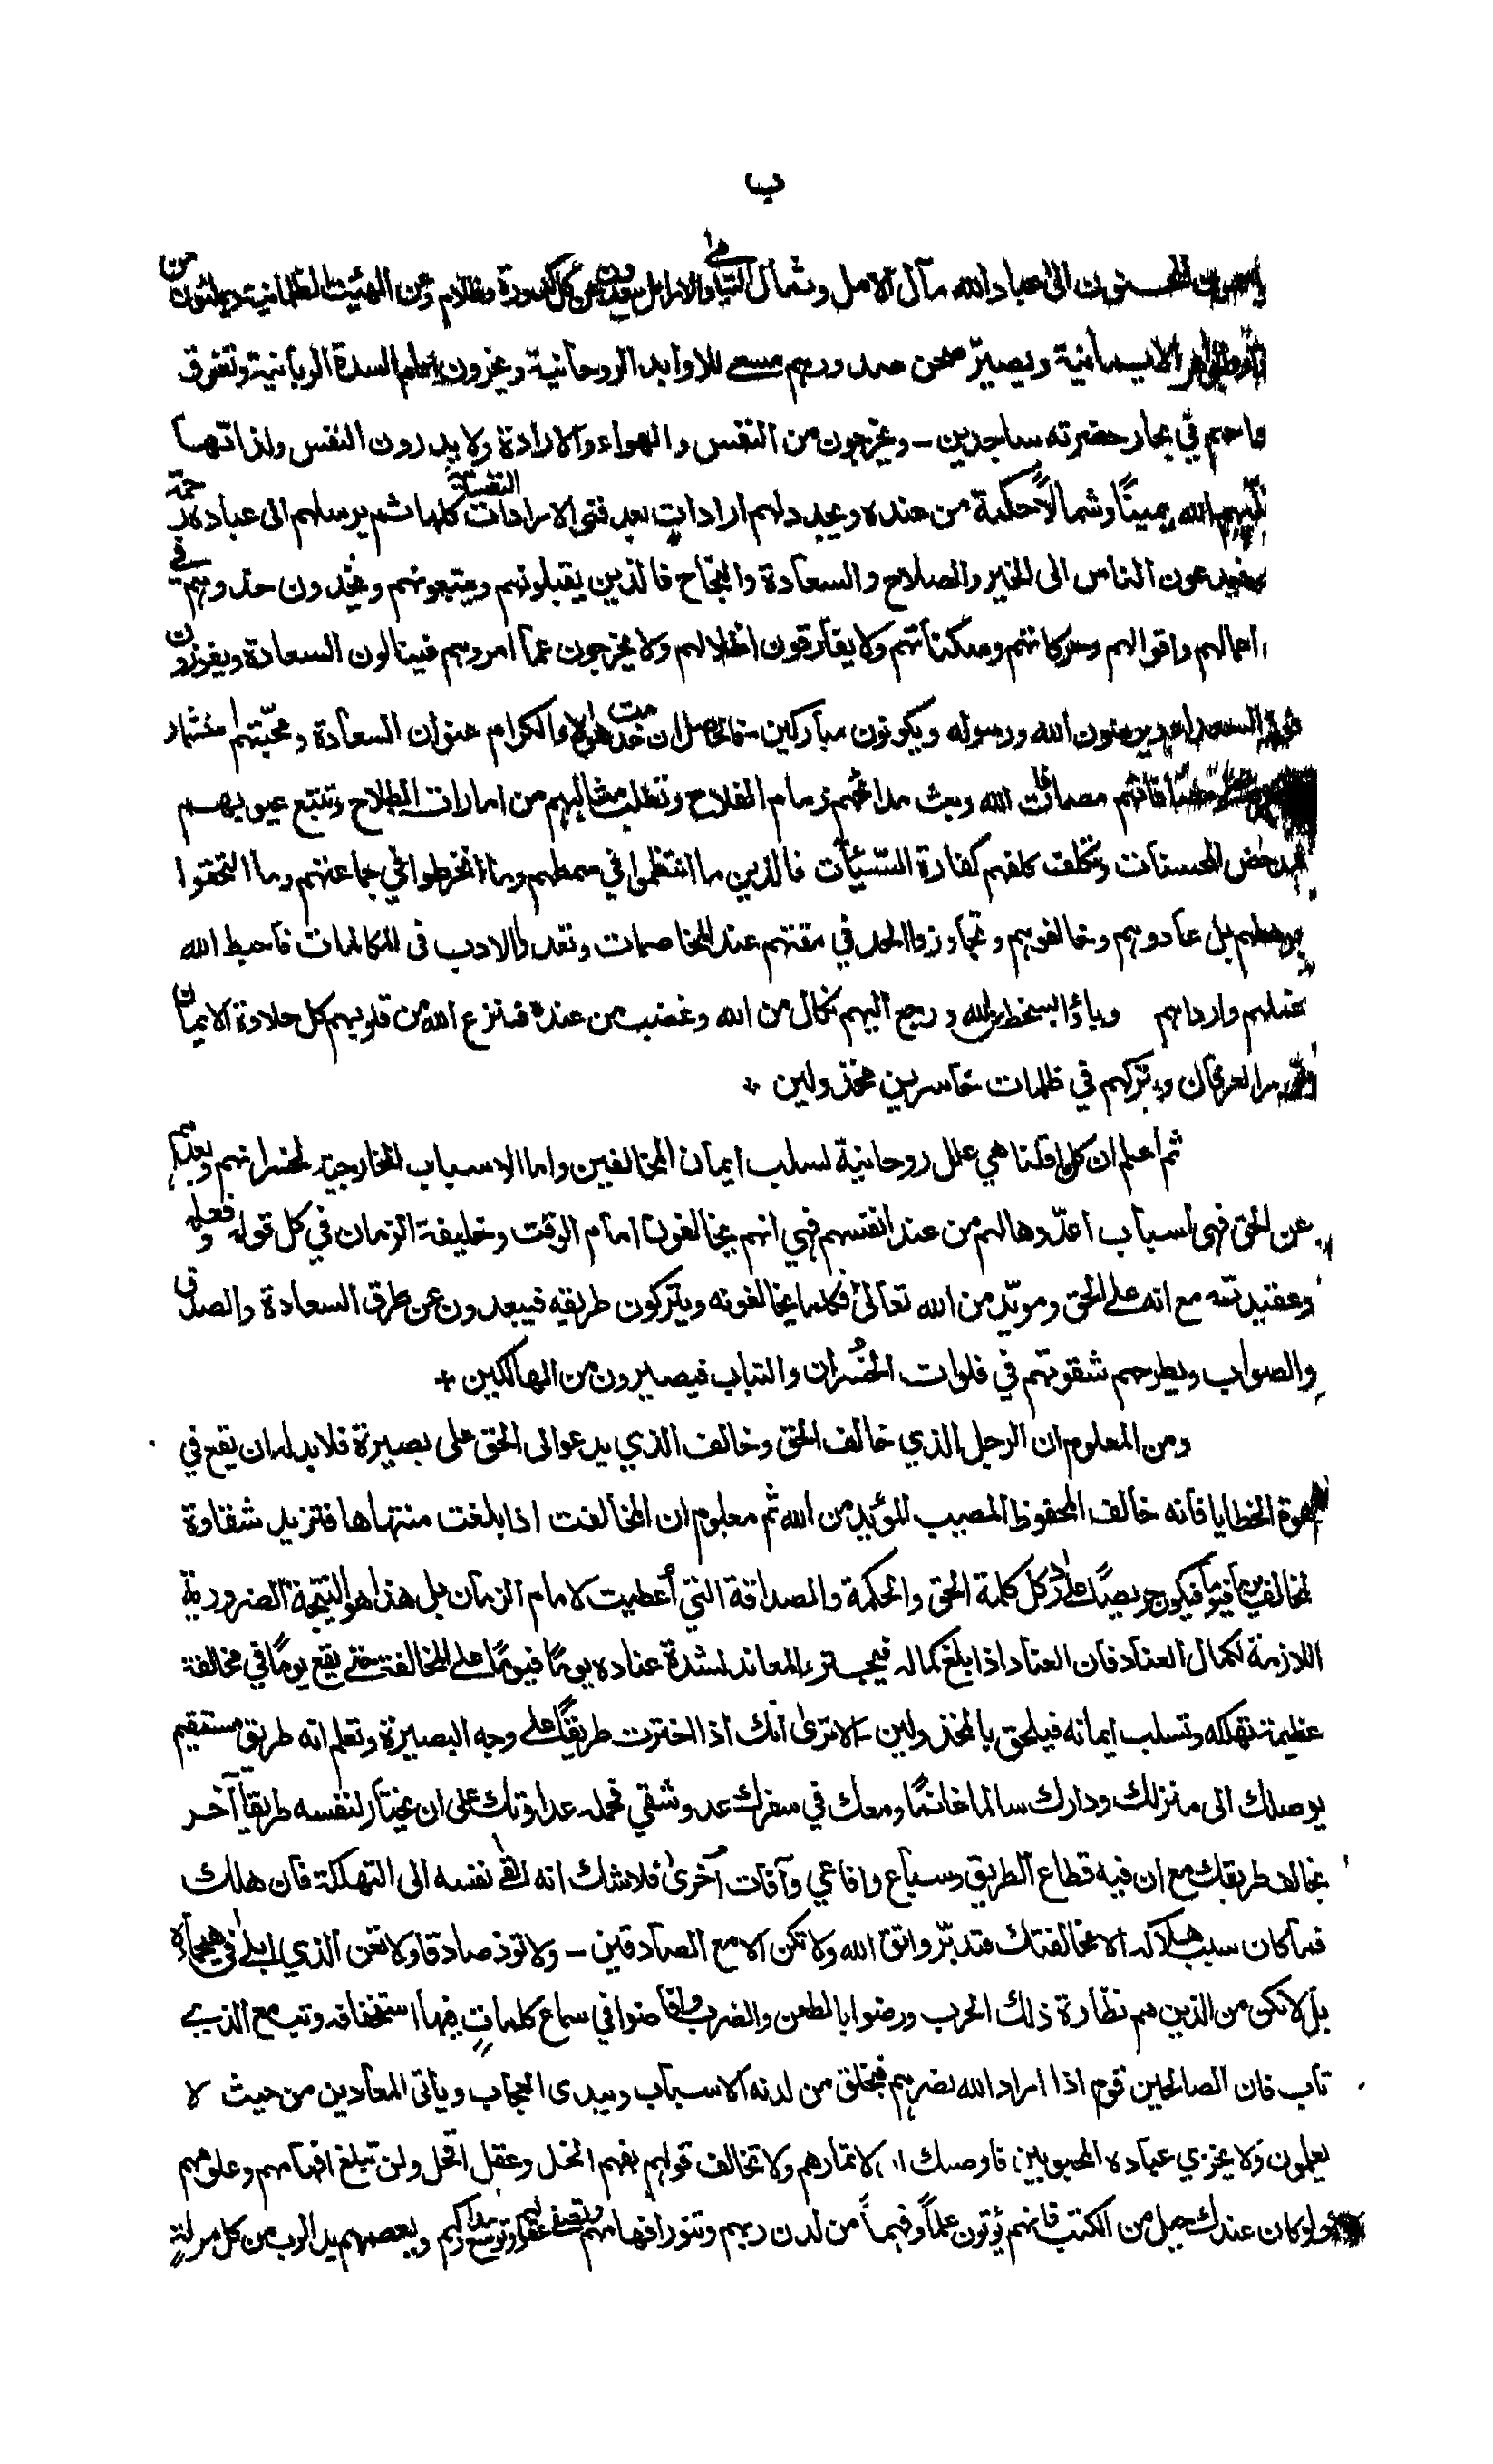 ب
الى عباد الله مآل الامل وثمال اليتامى والارامل يبعدون عن كل كدورة وظلام وعن الهيئات الظلمانية ويملئون من
ويصير صحن صدورهم مسعى للاوابد الروحانية ويخرون امام السدة الربانية وتغرق
واحهم في بحار حضرته ساجدين - ويخرجون من النفس والهواء والارادة ولا يدرون النفس ولذاتها
الله يمينًا وشمالًا حكمة من عنده ويجدد لهم اراداتٍ بعد فتى الارادات النفسانية كلها ثم يرسلهم الى عباده رحمة
فيدعون الناس الى الخير والصلاح والسعادة والنجاح فالذين يقبلونهم ويتبعونهم ويحذون حذوهم في
اعمالهم واقوالهم وحركاتهم وسكناتهم ولا يفارقون اظلالهم ولا يخرجون عما امروهم فينالون السعادة ويفوزون
السعداء ويرضون الله ورسوله ويكونون مباركين - فالحاصل ان خدمت هؤلاء الكرام عنوان السعادة ومحبتهم
مصافات الله وبث مدائحهم زمام الفلاح وتطلب مثالبهم من امارات الطلاح وتتبع عيوبهم
يدحض الحسنات وتكلف كلفهم كفارة السّيّئات فالذين ما انتظموا في سمطهم وما انخرطوا في جماعتهم وما التحقوا
برهطهم بل عادوهم وخالفوهم وتجاوزوا الحد في مقتهم عند المخاصمات وتعدوا الادب في المكالمات فاحبط الله
عملهم وارداهم وباؤا بسخط من الله ورجع اليهم نكال من الله وغضب من عنده فنزع الله من قلوبهم كل حلاوة الايمان
العرفان وتركهم في ظلمات خاسرين مخذولين *
ثم اعلم ان كل ما قلنا هي علل روحانية لسلب ايمان المخالفين واما الاسباب الخارجية لخسرانهم وبعدهم
عن الحق فهى اسباب اعدّوها لهم من عند انفسهم فهي انهم يخالفون امام الوقت وخليفة الزمان في كل قوله وفعله
وعقيدته مع انه على الحق ومؤيّد من الله تعالى فكلما يخالفونه ويتركون طريقه فيبعدون عن طرق السعادة والصدق
والصواب ويطرحهم شقوتهم في فلوات الخُسران والتباب فيصيرون من الهالكين *
ومن المعلوم ان الرجل الذي خالف الحق وخالف الذي يدعو الى الحق على بصيرة فلا بد له ان يقع في
هوة الخطايا فانه خالف المحفوظ المصيب المؤيد من الله ثم معلوم ان المخالفت اذا بلغت منتهاها فتزيد شقاوة
المخالفين يومًا فيومًا فيكون حريصًا على رد كل كلمة الحق والحكمة والصداقة التي أُعطيت لامام الزمان بل هذا هو النتيجة الضرورية
اللازمة لكمال العناد فان العناد اذا بلغ كماله فيجترء المعاند لشدة عناده يومًا فيومًا على المخالفت حتى يقع يومًا في مخالفة
عظيمة تهلكه وتسلب ايمانه فيلحق بالمخذولين - الا ترى انك اذا اخترت طريقًا على وجه البصيرة وتعلم انه طريق مستقيم
يوصلك الى منزلك ودارك سالما غانمًا ومعك في سفرك عدو شقي فحمله عداوتك على ان يختار لنفسه طريقًا آخر
يخالف طريقك مع ان فيه قطاع الطريق وسباع وافاعي وآفات اُخرىٰ فلا شك انه القى نفسه الى التهلكة فان هلك
فما كان سبب هلاكه الا مخالفتك فتدبّر واتق الله ولا تكن الا مع الصادقين - ولا تؤذ صادقا ولا تعن الذي ابلى في هيجاءه
بل لا تكن من الذين هم نظارة ذلك الحرب ورضوا بالطعن والضرب وافاضوا في سماع كلماتٍ فيها استخفافه وتب مع الذي
تاب فان الصالحين قوم اذا اراد الله نصرهم فيخلق من لدنه الاسباب ويبدى العجاب وياتى المعادين من حيث لا
يعلمون ولا يخزي عباده المحبوبين فاوصيك ان لا تمارهم ولا تخالف قولهم بفهم انحل وعقل اقحل ولن تبلغ افهامهم وعلومهم
ولو كان عندك جبل من الكتب فانهم يُؤتون علمًا وفهمًا من لدن ربهم وتنور افهامهم وتصفى عقولهم وتوسع مداركهم ويعصمهم يد الرب من كل مزلةٍ